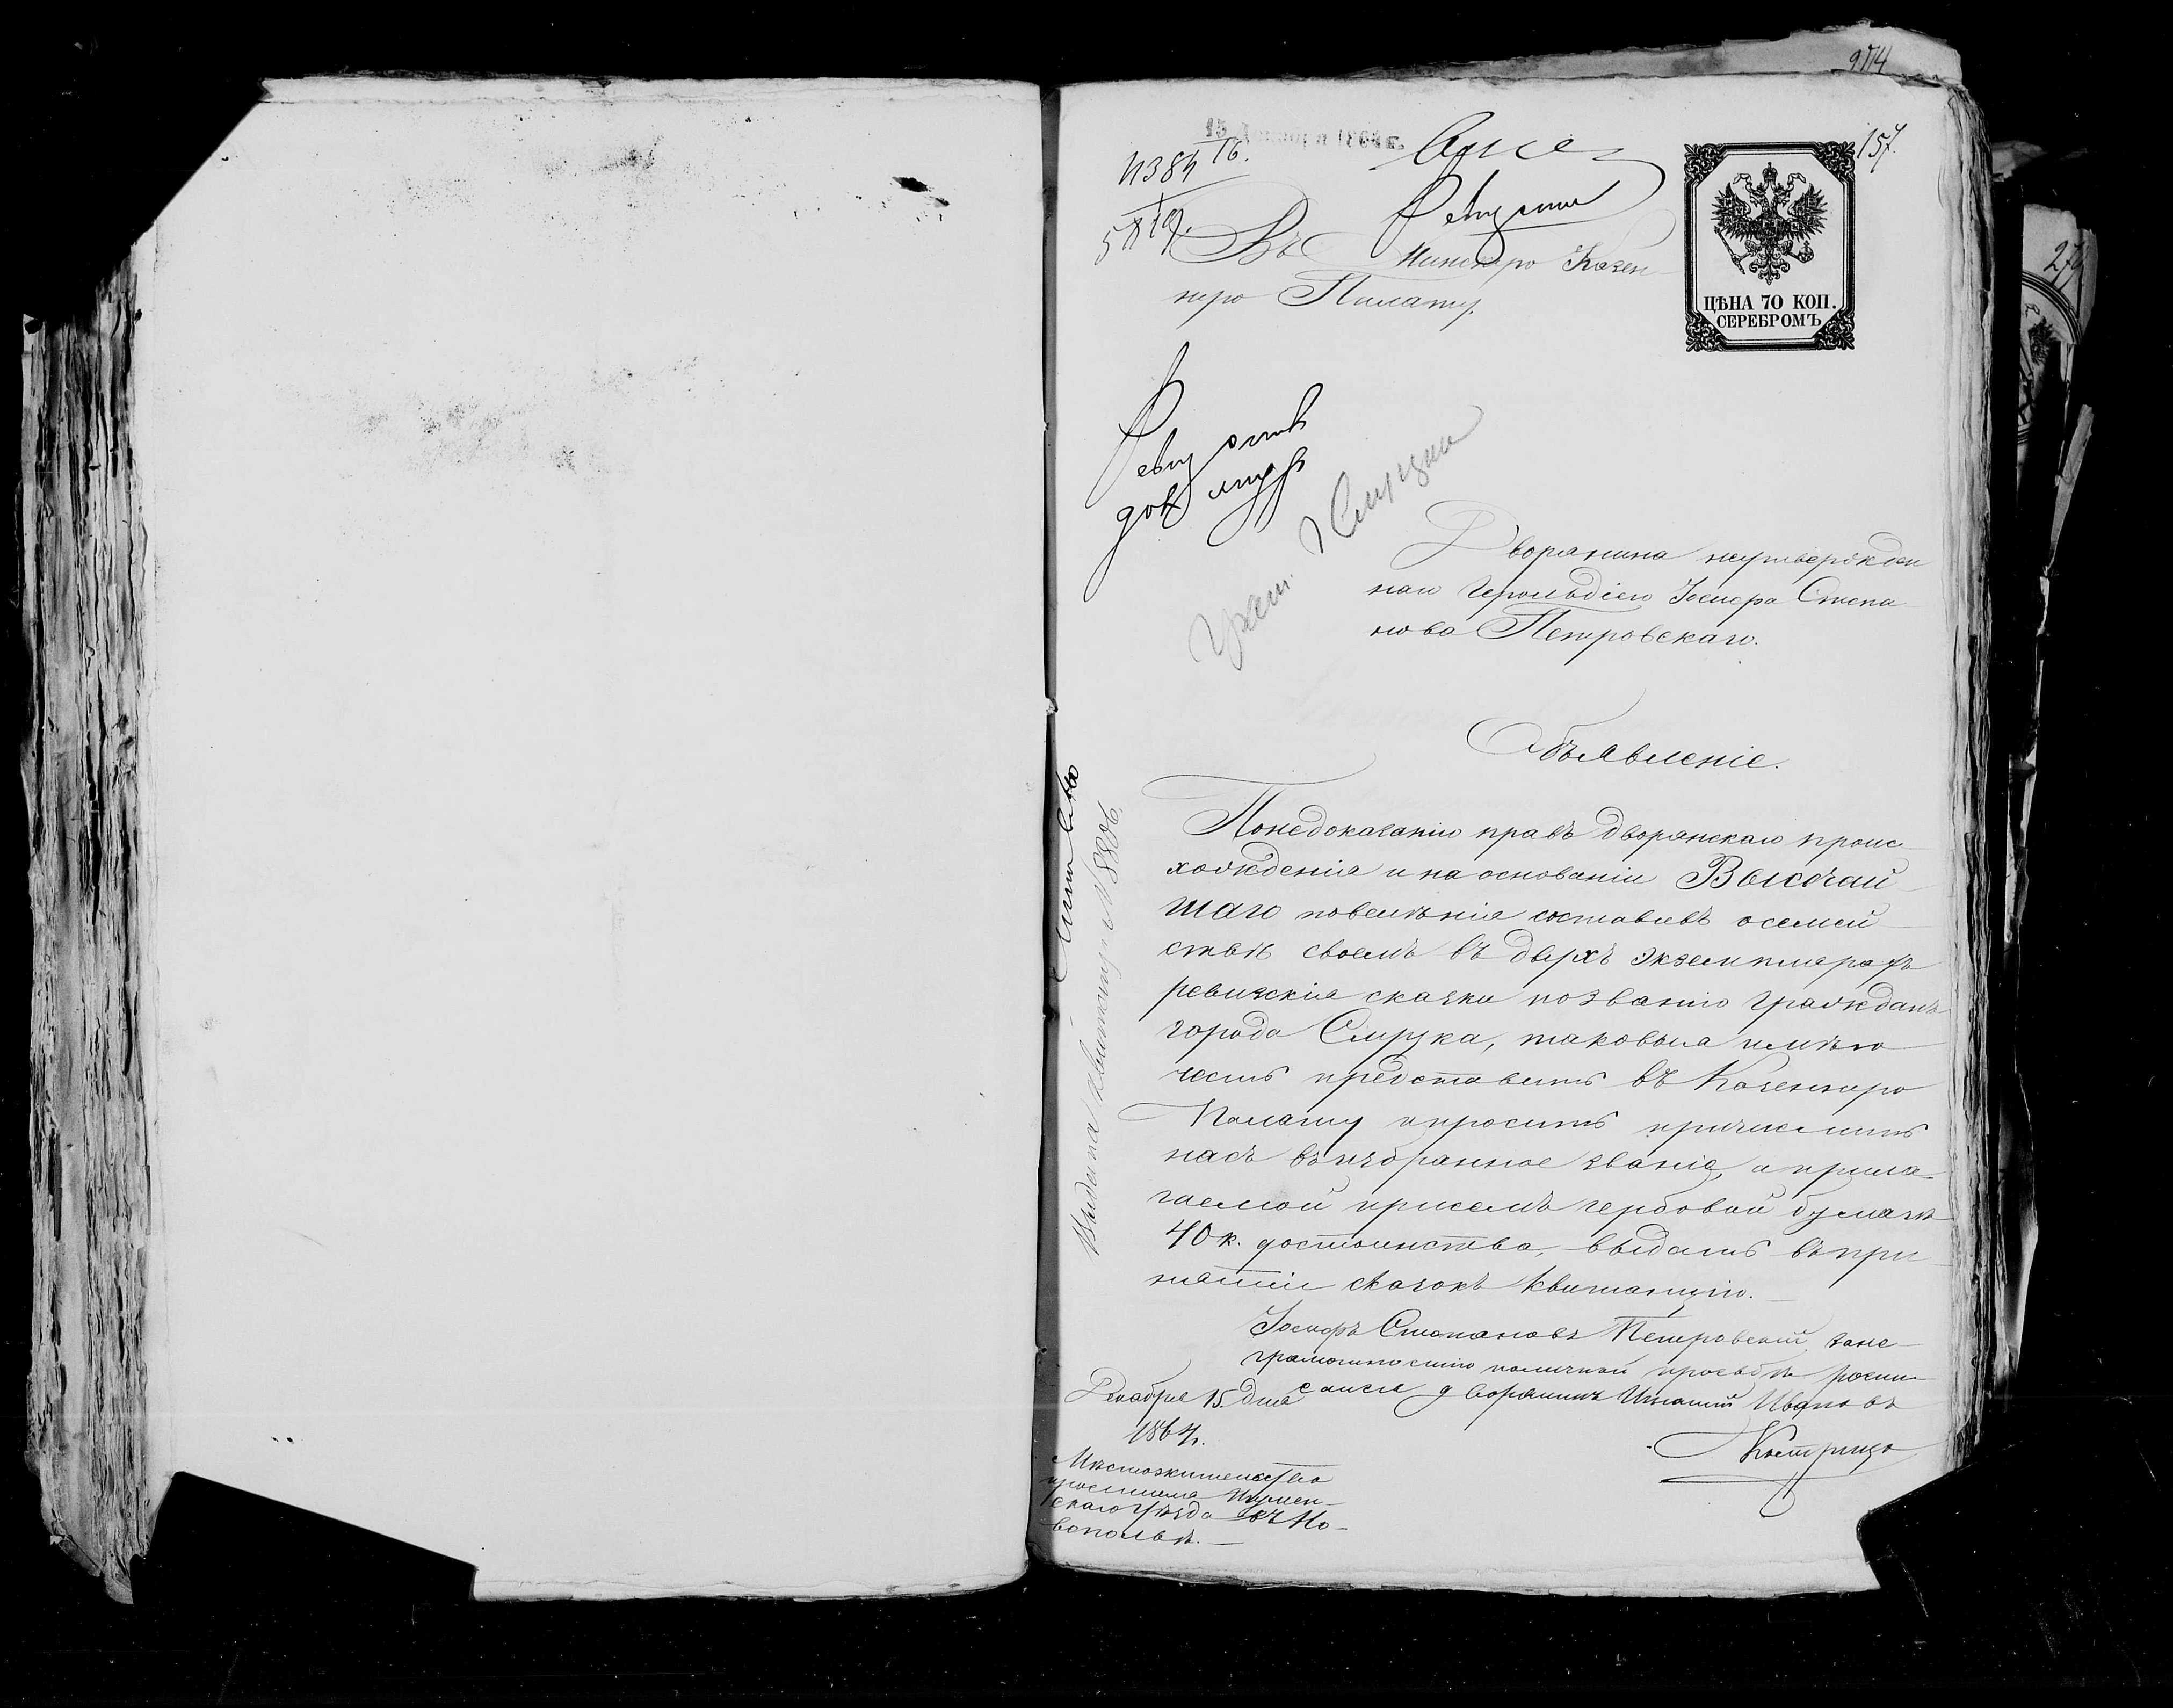 274
157.
ЦѢНА 70 КОП.
СЕРЕБРОМЪ
Въ Минскую Казен
ную Палату.
Ревиз
Граж. г. Слуцка
Дворянина неутвержден
наго Герольдіею Іосифа Степа
нова Петровскаго.
Объявленіе.
Понедоказанію правъ дворянскаго проис
хожденія и на основаніи Высочай
шаго повелѣнія составивъ осемей
ствѣ своемъ въ двухъ экземплярахъ
ревизскія сказки позванію гражданъ
города Слуцка, таковыя имѣю
честь представить въ Казенную
Палату ипросить причислить
насъ въизбранное званіе, априла
гаемой присемъ гербовой бумагѣ
40 к. достоинства, выдать въпри
нятіи сказокъ квитанцію.
Іосифъ Степановъ Петровскій, зане
грамотностію поличной прозьбѣ роспи
сался дворянинъ Игнатій Ивановъ
Декабря 15. дня
1864 г.
Мѣстожительство
просителя Игумен-
скаго уѣзда въ Но-
вопольѣ.
Выдана квитанція № 8806.